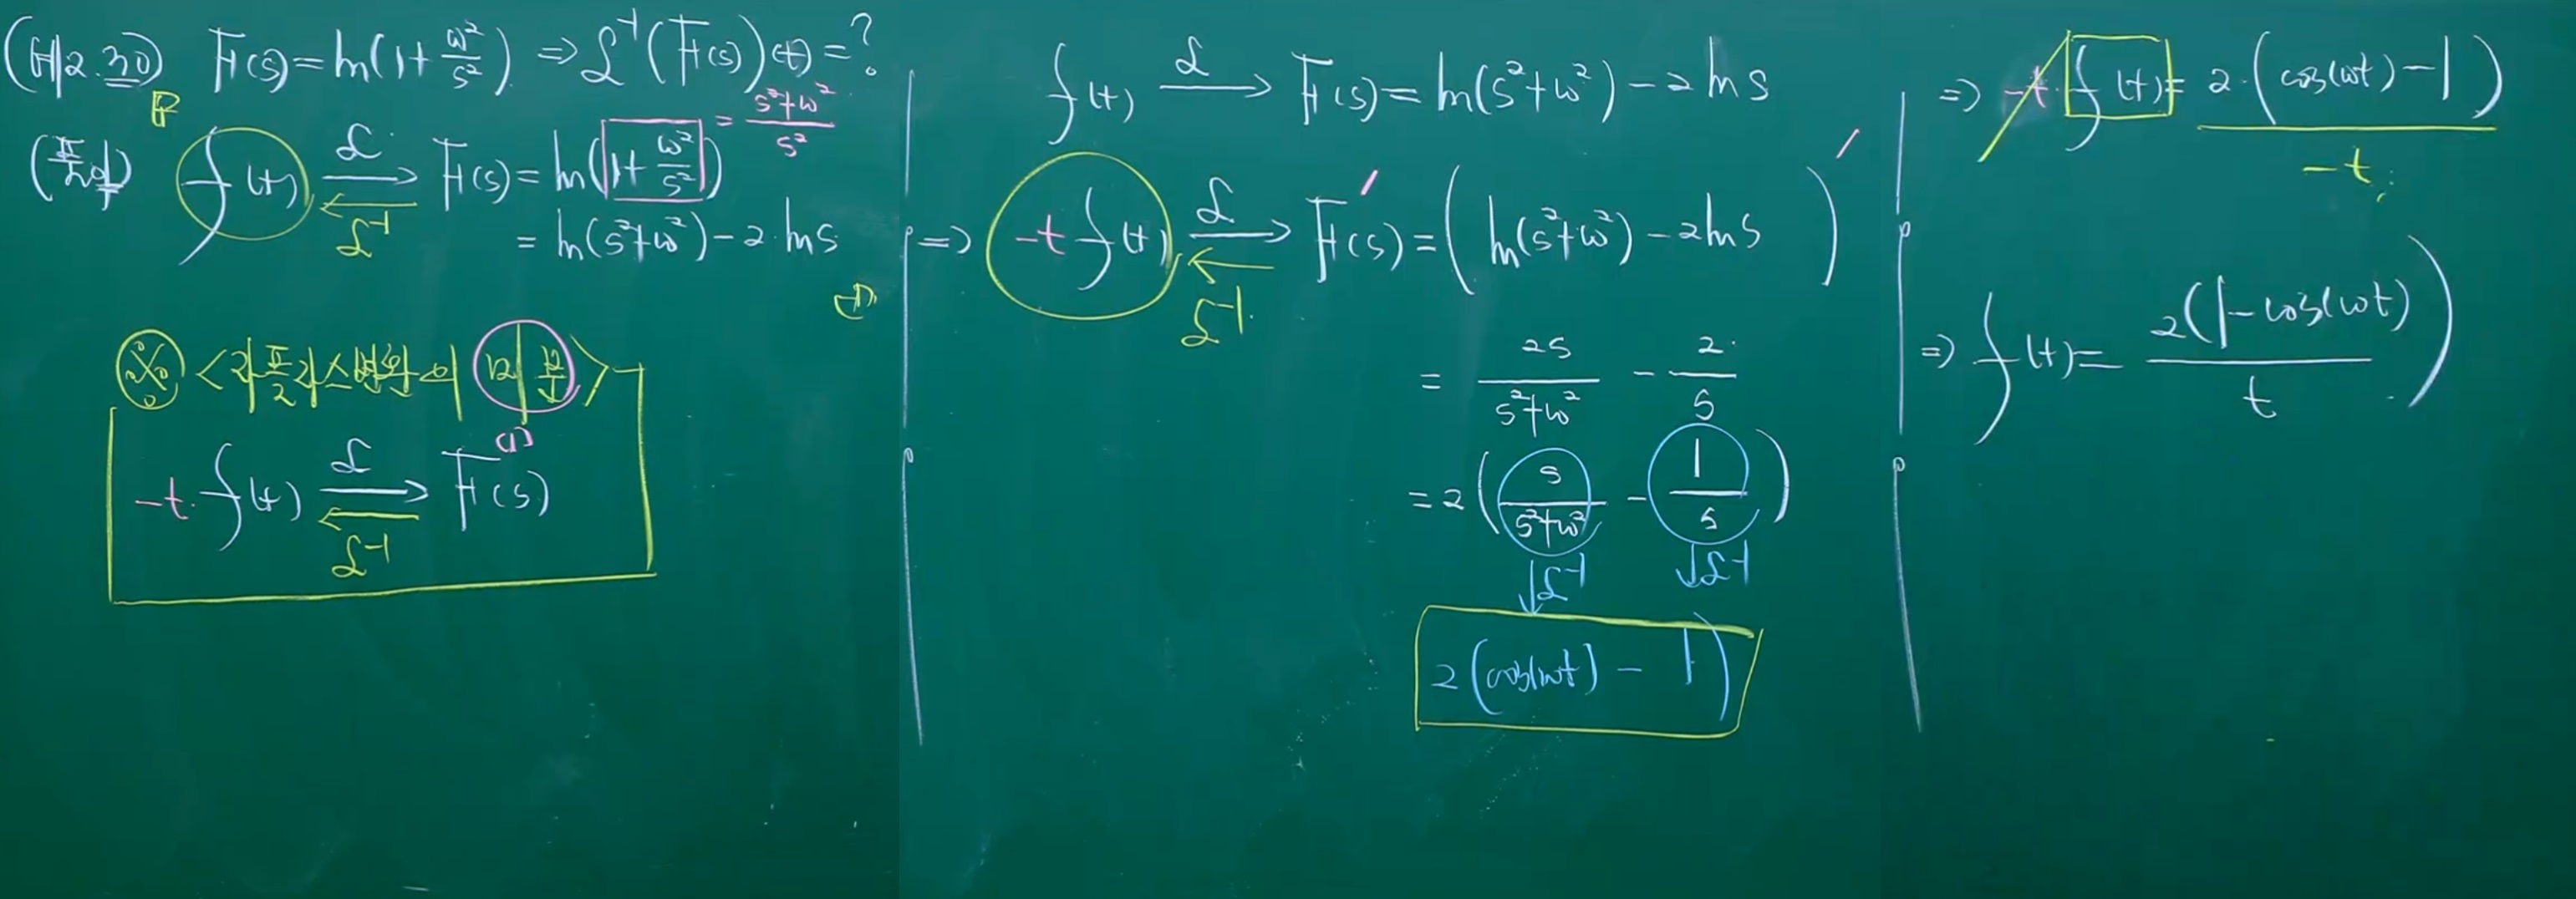 (예2.30) F(s)=ln(1+ω²/s²) ⇒ ℒ⁻¹(F(s))(t)=?
(풀이) f(t) ℒ→ F(s)=ln(1+ω²/s²) = (s²+ω²)/s²
←ℒ⁻¹ = ln(s²+ω²)-2·ln s
※ <라플라스변환의 미분>
-t·f(t) ℒ→ F⁽¹⁾(s)
←ℒ⁻¹
f(t) ℒ→ F(s)=ln(s²+ω²)-2ln s
⇒ -t f(t) ℒ→ F′(s)=(ln(s²+ω²)-2ln s)′
←ℒ⁻¹
= 2s/(s²+ω²) - 2/s
=2(s/(s²+ω²) - 1/s)
↓ℒ⁻¹ ↓ℒ⁻¹
2(cos(ωt) - 1)
⇒ -t·f(t)= 2·(cos(ωt)-1)
-t
⇒ f(t)= 2(1-cos(ωt))/t